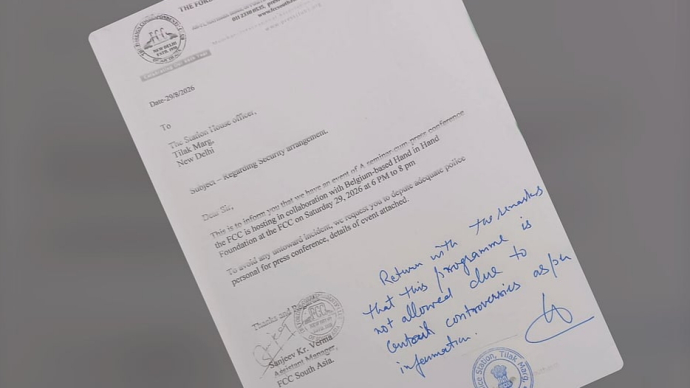 THE FOR
FCC
NEW DELHI
Date-29/8/2026
To
The Station House officer,
Tilak Marg,
New Delhi
Subject – Regarding Security arrangement.
Dear Sir,
This is to inform you that we have an event of A seminar-cum-press conference
the FCC is hosting in collaboration with Belgium-based Hand in Hand
Foundation at the FCC on Saturday 29, 2026 at 6 PM to 8 pm
To avoid any untoward incident, we request you to depute adequate police
personal for press conference, details of event attached.
Thanks and Regards
Sanjeev Kr. Verma
Assistant Manager,
FCC South Asia.
Return with the remarks
that this programme is
not allowed due to
controversies as per
information.
Station, Tilak Marg,